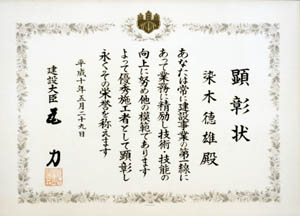 顕彰状
染木徳雄殿
あなたは常に建設事業の第一線に
あって業務に精励し技術・技能の
向上に努め他の模範であります
よって優秀施工者として顕彰し
永くその栄誉を称えます
平成十年五月二十九日
建設大臣 瓦 力